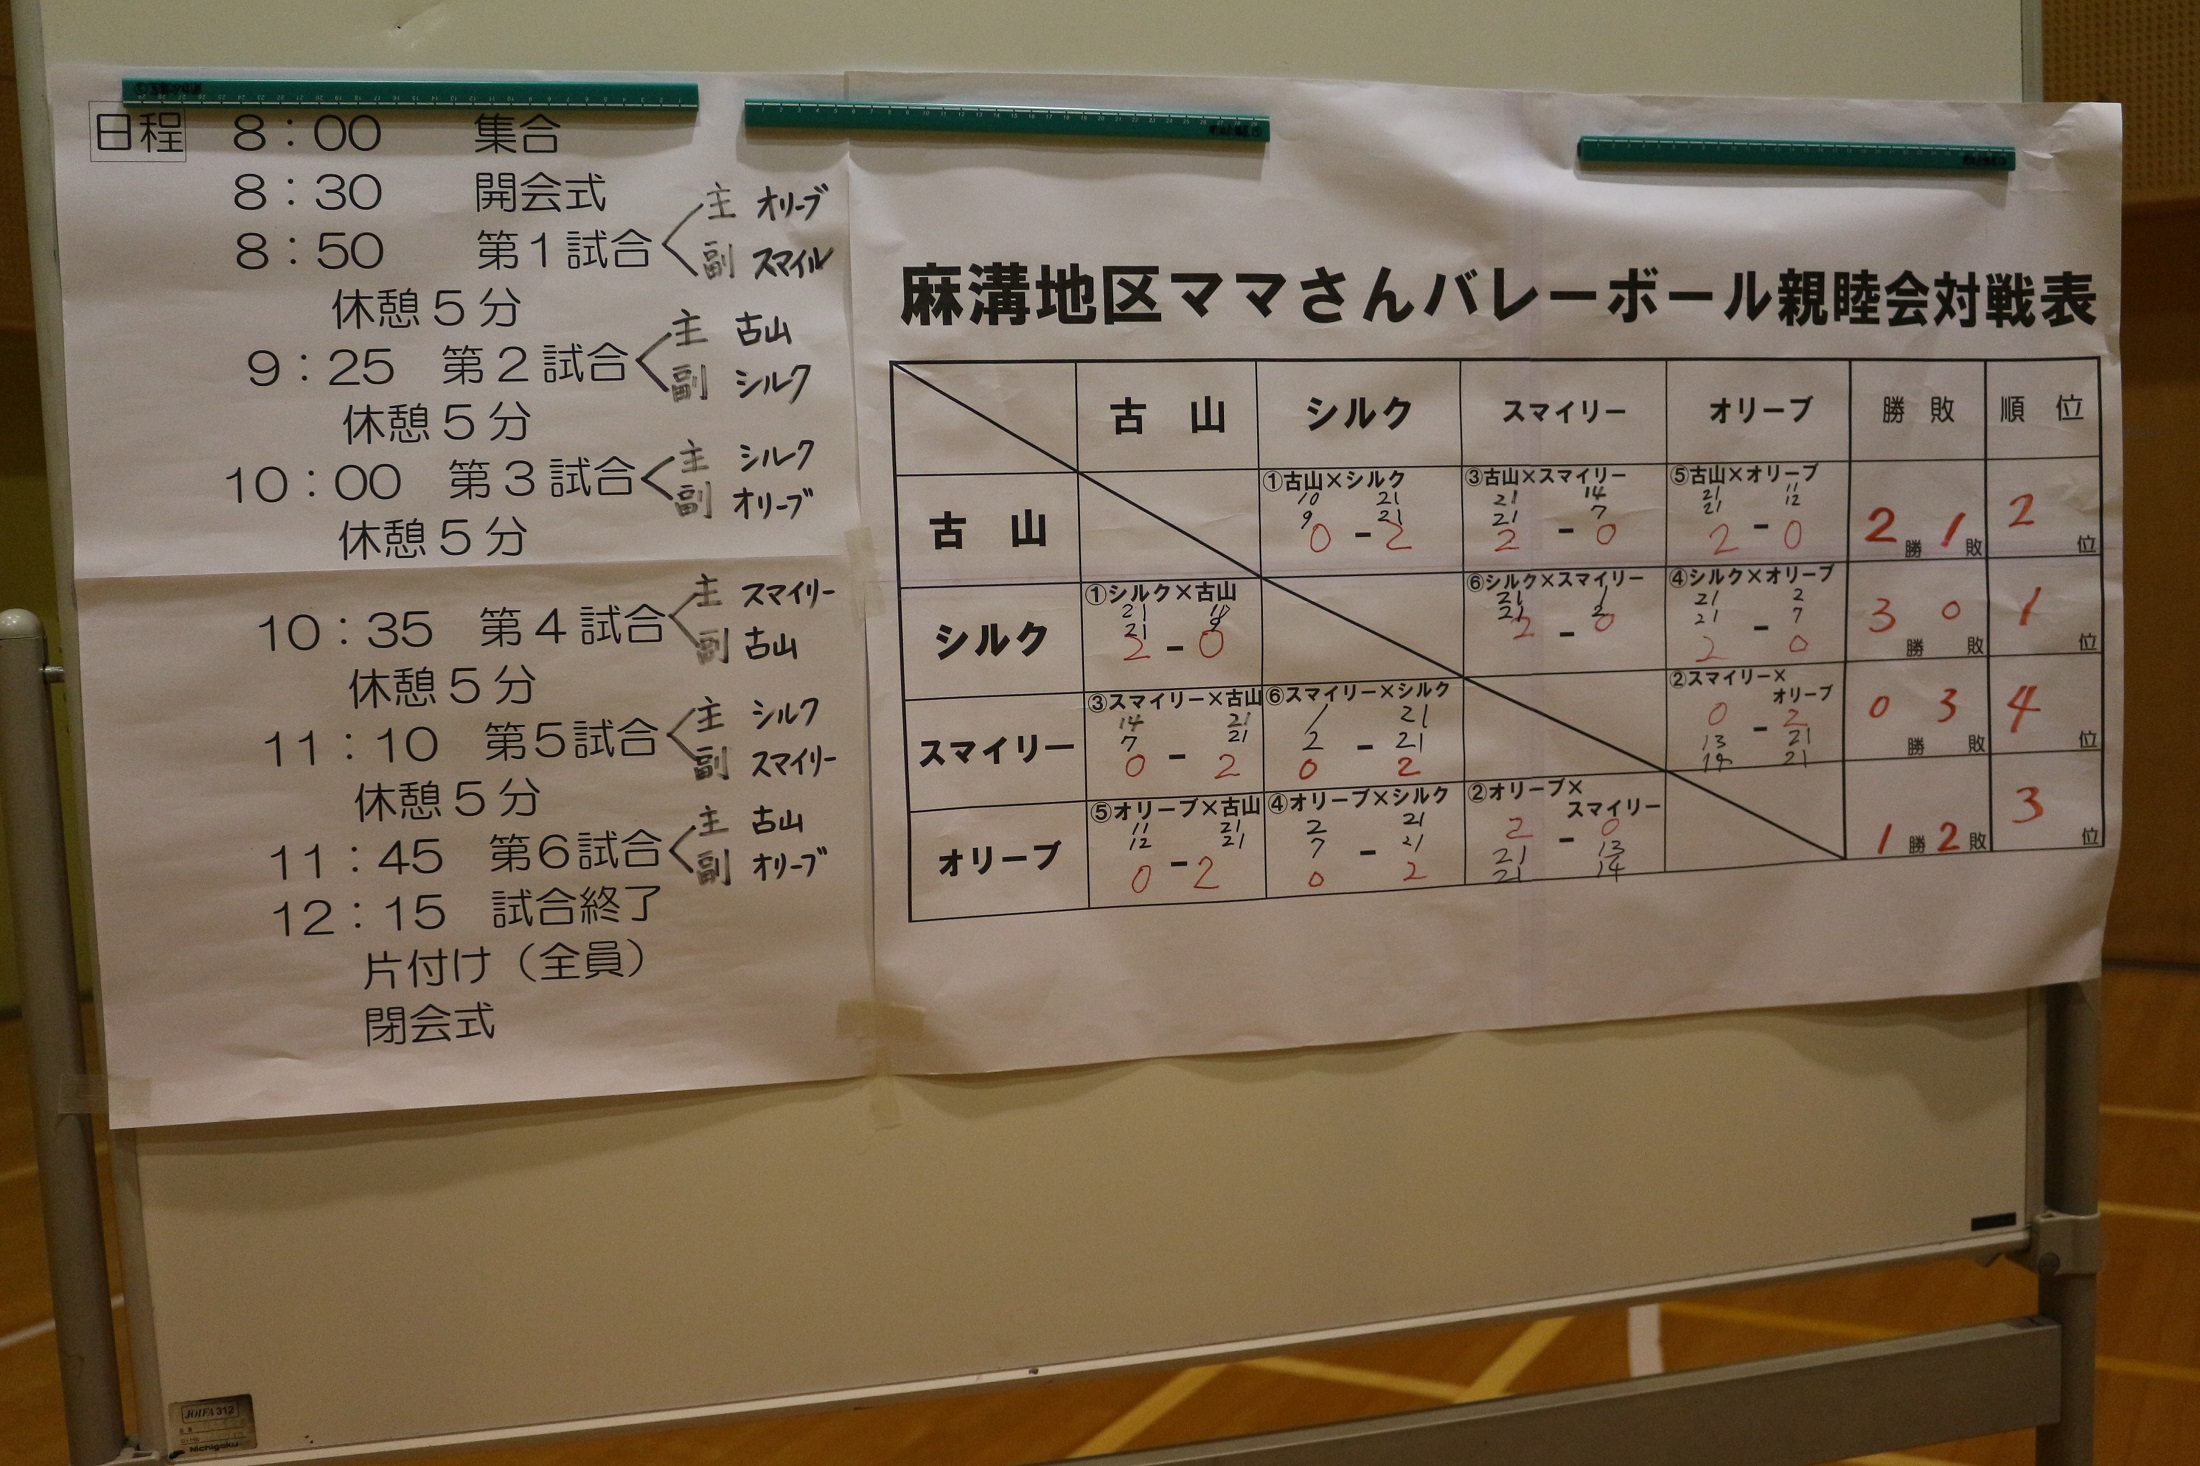 日程 8：00 集合
8：30 開会式
8：50 第1試合 主 オリーブ
副 スマイル
休憩5分
9：25 第2試合 主 古山
副 シルク
休憩5分
10：00 第3試合 主 シルク
副 オリーブ
休憩5分
10：35 第4試合 主 スマイリー
副 古山
休憩5分
11：10 第5試合 主 シルク
副 スマイリー
休憩5分
11：45 第6試合 主 古山
副 オリーブ
12：15 試合終了
片付け（全員）
閉会式
麻溝地区ママさんバレーボール親睦会対戦表
古山 シルク スマイリー オリーブ 勝敗 順位
古山
①古山×シルク
10 21
9 21
0 - 2
③古山×スマイリー
21 14
21 7
2 - 0
⑤古山×オリーブ
21 11
21 12
2 - 0
2勝 1敗
2位
シルク
①シルク×古山
21 10
21 9
2 - 0
⑥シルク×スマイリー
21 1
21 2
2 - 0
④シルク×オリーブ
21 2
21 7
2 - 0
3勝 0敗
1位
スマイリー
③スマイリー×古山
14 21
7 21
0 - 2
⑥スマイリー×シルク
1 21
2 - 21
0 2
②スマイリー×
オリーブ
0 - 2
13 21
14 21
0勝 3敗
4位
オリーブ
⑤オリーブ×古山
11 21
12 21
0 - 2
④オリーブ×シルク
2 21
7 - 21
0 2
②オリーブ×
スマイリー
2 - 0
21 13
21 14
1勝 2敗
3位
Nichigaku